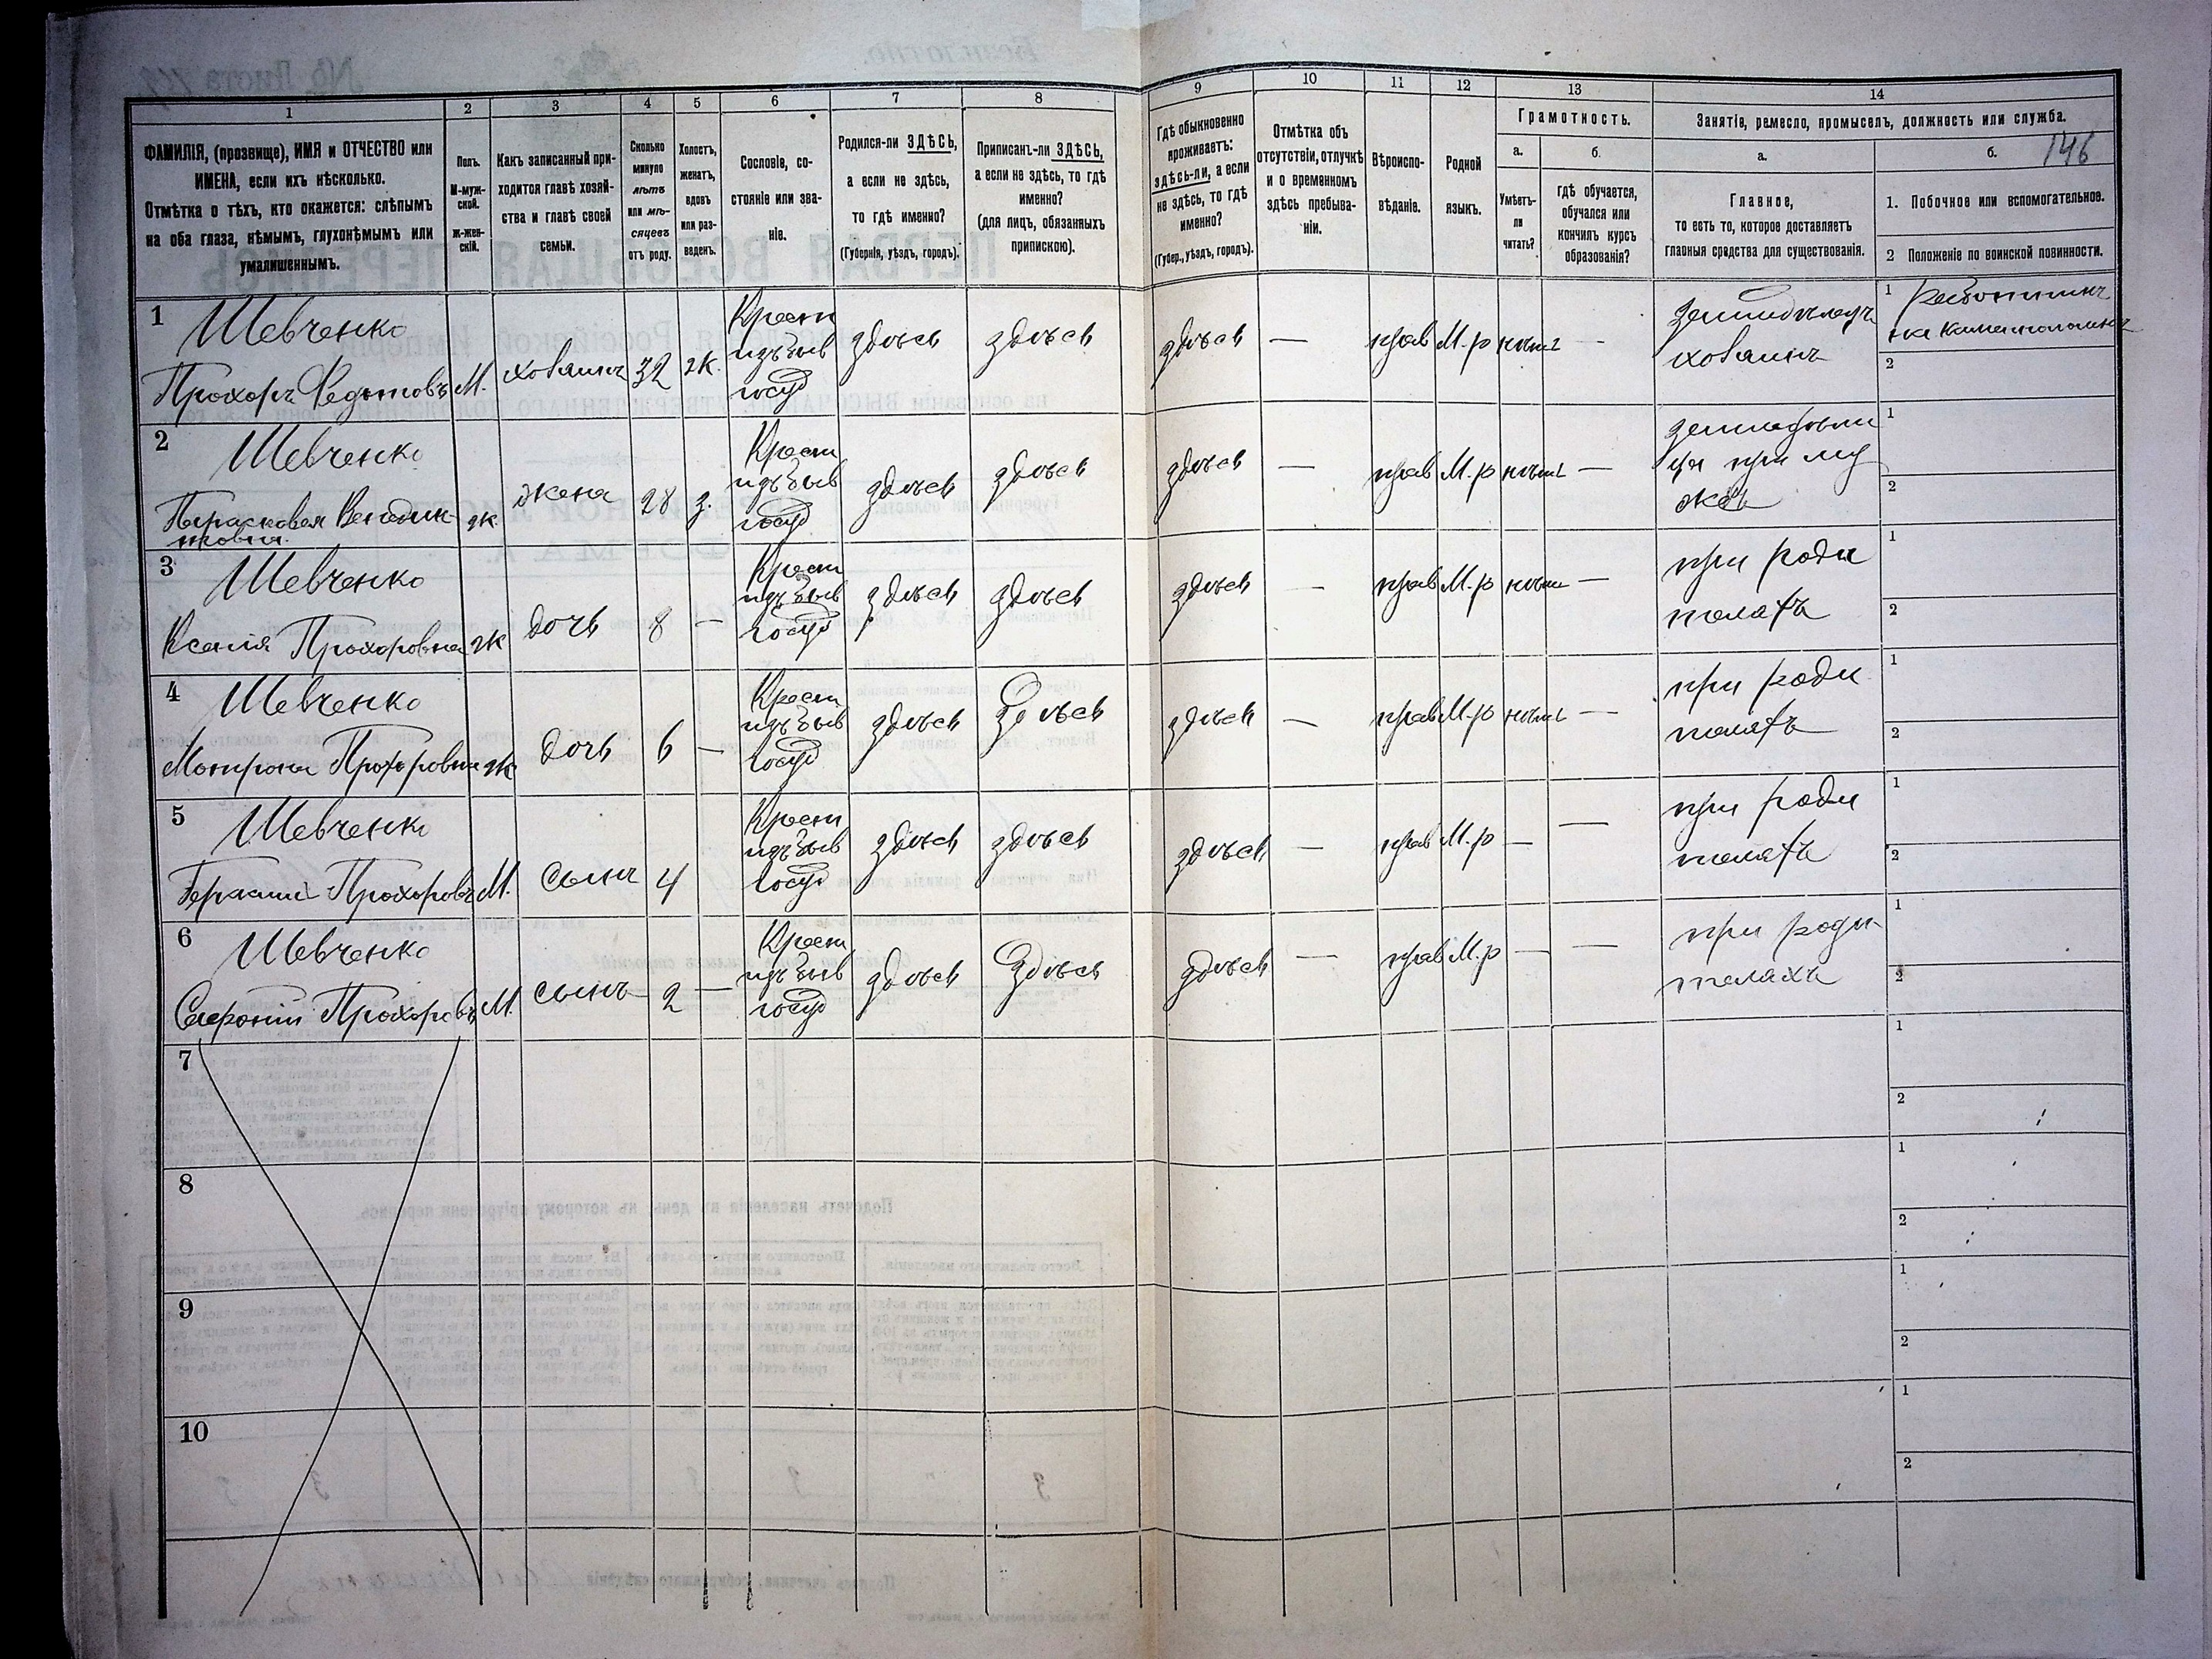 1 2 3 4 5 6 7 8 9 10 11 12 13 14
ФАМИЛІЯ, (прозвище), ИМЯ и ОТЧЕСТВО или
ИМЕНА, если ихъ нѣсколько.
Отмѣтка о тѣхъ, кто окажется: слѣпымъ
на оба глаза, нѣмымъ, глухонѣмымъ или
умалишеннымъ.
Полъ.
М-муж-
ской.
Ж-жен-
скій.
Какъ записанный при-
ходится главѣ хозяй-
ства и главѣ своей
семьи.
Сколько
минуло
лѣтъ
или мѣ-
сяцевъ
отъ роду.
Холостъ,
женатъ,
вдовъ
или раз-
веденъ.
Сословіе, со-
стояніе или зва-
ніе.
Родился-ли ЗДѢСЬ,
а если не здѣсь,
то гдѣ именно?
(Губернія, уѣздъ, городъ).
Приписанъ-ли ЗДѢСЬ,
а если не здѣсь, то гдѣ
именно?
(для лицъ, обязанныхъ
припискою).
Гдѣ обыкновенно
проживаетъ:
здѣсь-ли, а если
не здѣсь, то гдѣ
именно?
(Губер., уѣздъ, городъ).
Отмѣтка объ
отсутствіи, отлучкѣ
и о временномъ
здѣсь пребыва-
ніи.
Вѣроиспо-
вѣданіе.
Родной
языкъ.
Грамотность.
а.
Умѣетъ-
ли
читать?
б.
гдѣ обучается,
обучался или
кончилъ курсъ
образованія?
Занятіе, ремесло, промыселъ, должность или служба.
а.
Главное,
то есть то, которое доставляетъ
главныя средства для существованія.
б. 146
1. Побочное или вспомогательное.
2 Положеніе по воинской повинности.
1 Шевченко
Прохоръ Федотовъ
М. хозяинъ 32 ж.
Крест
изъ быв
госуд
здѣсь здѣсь здѣсь — прав М.р нѣтъ —
земледѣлецъ
хозяинъ
1
2
2 Шевченко
Парасковея Венедик-
товна
ж. жена 28 з.
Крест
изъ быв
госуд
здѣсь здѣсь здѣсь — прав М.р нѣтъ —
земледѣли
ца при му
жѣ
1
2
3 Шевченко
Ксенія Прохоровна
ж дочь 8 —
Крест
изъ быв
госуд
здѣсь здѣсь здѣсь — прав М.р нѣтъ —
при роди
теляхъ
1
2
4 Шевченко
Мотрона Прохоровна
ж дочь 6 —
Крест
изъ быв
госуд
здѣсь здѣсь здѣсь — прав М.р нѣтъ —
при роди
теляхъ
1
2
5 Шевченко
Герасим Прохоровъ
М. сынъ 4
Крест
изъ быв
госуд
здѣсь здѣсь здѣсь — прав М.р — —
при роди
теляхъ
1
2
6 Шевченко
Софроній Прохоровъ
М. сынъ 2 —
Крест
изъ быв
госуд
здѣсь здѣсь здѣсь — прав М.р — —
при роди
теляхъ
1
2
7
1
2
8
1
2
9
1
2
10
1
2